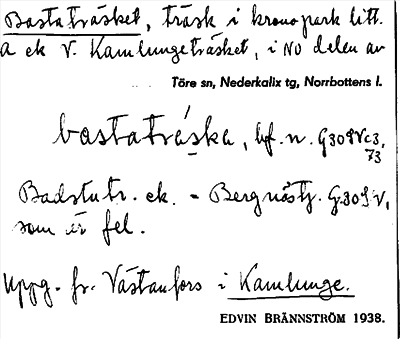 Bastaträsket, träsk i kronopark litt.
A ek V. Kamlungeträsket, i NO delen av
Töre sn, Nederkalix tg, Norrbottens l.
bastatráska, bf. n. G30SVc3,
73
Badstutr. ek. = Bergnästj. G.30S V,
som är fel.
Uppg. fr. Västanfors i Kamlunge.
EDVIN BRÄNNSTRÖM 1938.